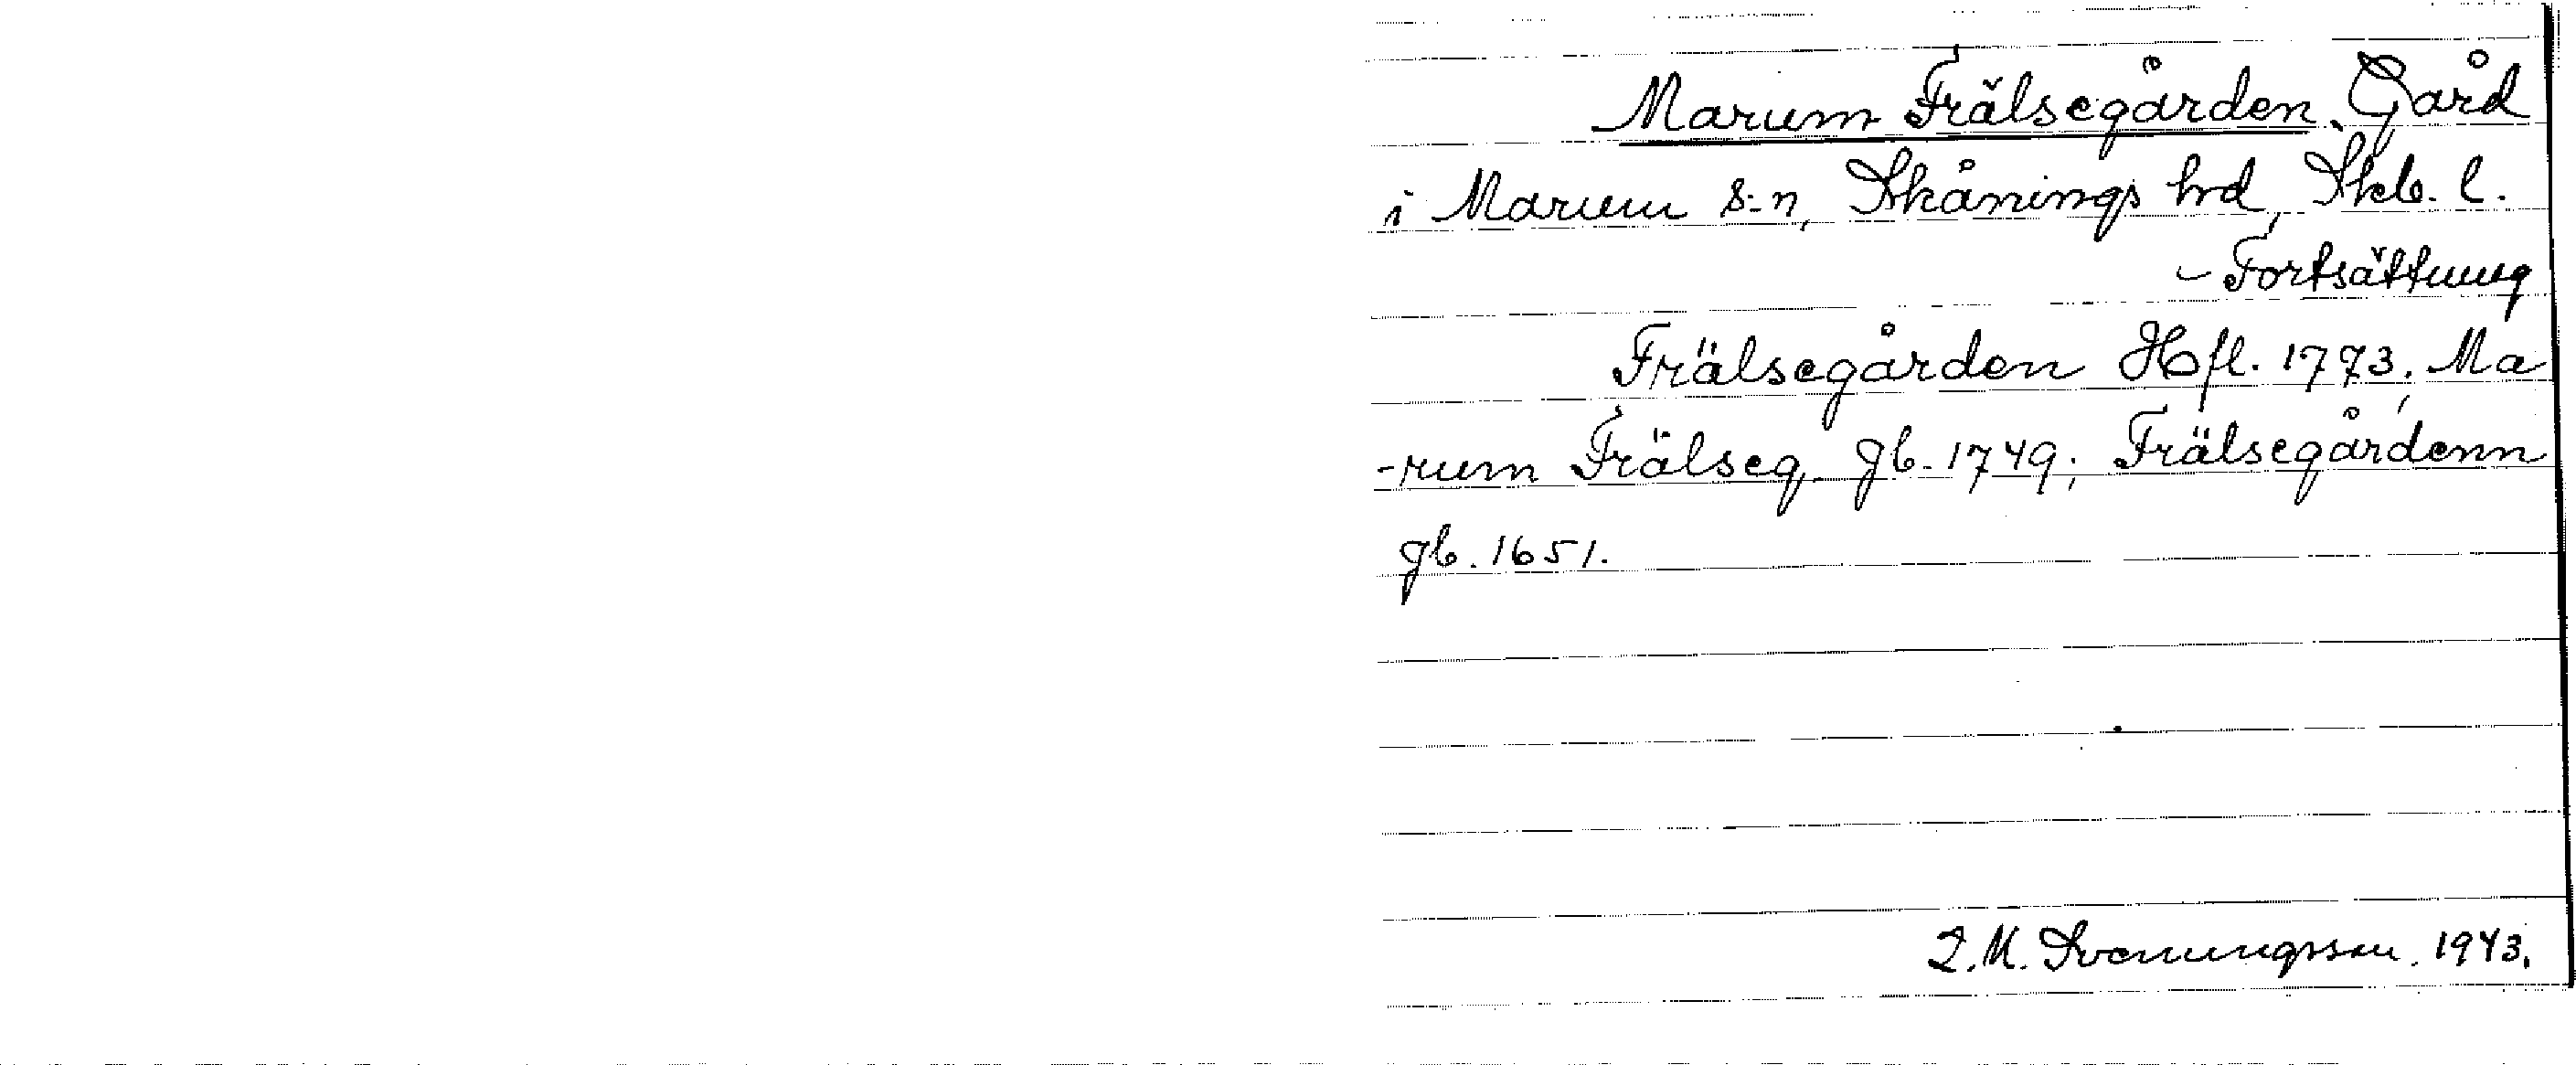 Marum Frälsegården, Gård
i Marum s-n, Skånings hrd, Skb. l.
- Fortsättning
Frälsegården Hfl. 1773; Ma
-rum Frälseg. gb. 1749; Frälsegårdenn
gb. 1651.
L. M. Svenungsson. 1943.